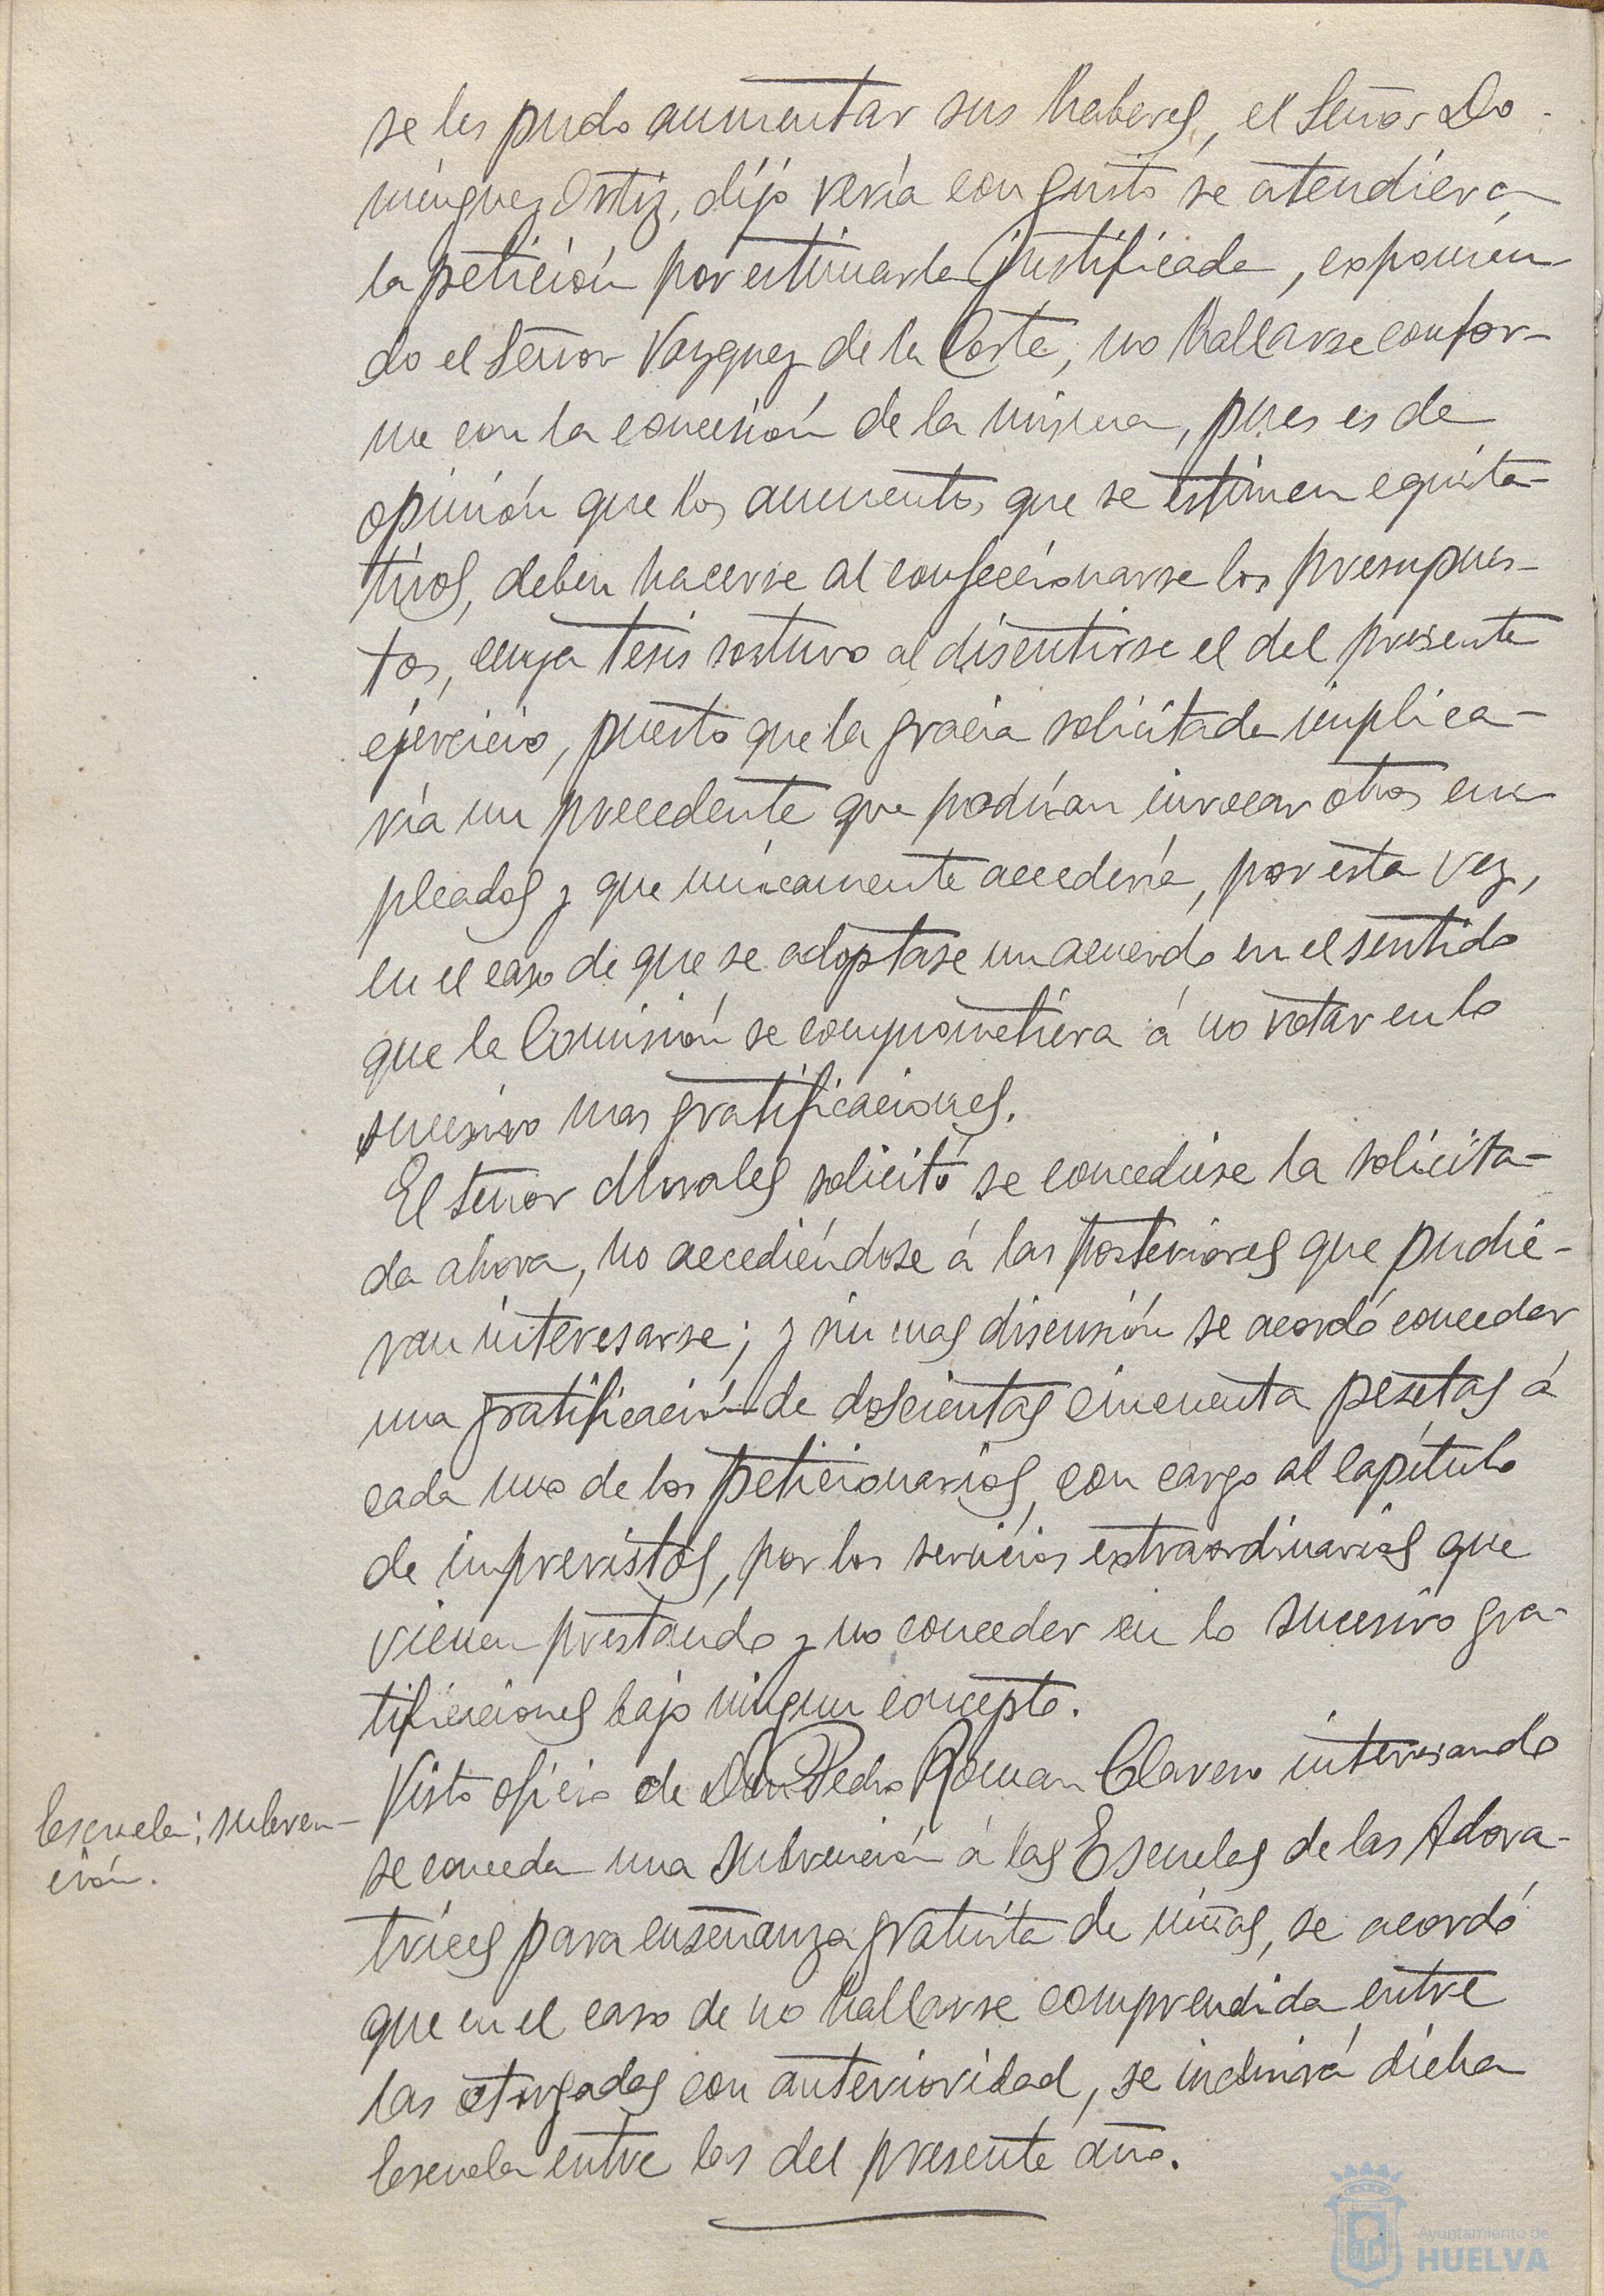 se les pudo aumentar sus haberes, el Señor Do-
minguez Ortiz, dijo vería con gusto se atendiera
la petición por estimarla justificada, exponien-
do el Señor Vazquez de la Corte, no hallarse confor-
me con la concesión de la misma, pues es de
opinión que los aumentos que se estimen equita-
tivos, deben hacerse al confeccionarse los presupues-
tos, cuya tesis sostuvo al discutirse el del presente
ejercicio, puesto que la gracia solicitada implica-
ría un precedente que podrían invocar otros em
pleados y que únicamente accedería, por esta vez,
en el caso de que se adoptase un acuerdo en el sentido
que la Comisión se comprometiera á no votar en lo
sucesivo mas gratificaciones.
El Señor Morales solicitó se concediese la solicita-
da ahora, no accediéndose á las posteriores que pudie-
ran interesarse; y sin mas discusión se acordó conceder
una gratificación de doscientas cincuenta pesetas á
cada uno de los peticionarios, con cargo al capítulo
de imprevistos, por los servicios extraordinarios que
vienen prestando y no conceder en lo sucesivo gra-
tificaciones bajo ningun concepto.
Escuela: subven-
ción.
Visto oficio de Don Pedro Roman Clavero interesando
se conceda una subvención á las Escuelas de las Adora-
trices para enseñanza gratuita de niñas, se acordó
que en el caso de no hallarse comprendida entre
las otorgadas con anterioridad, se incluirá dicha
Escuela entre las del presente año.
Ayuntamiento de
HUELVA